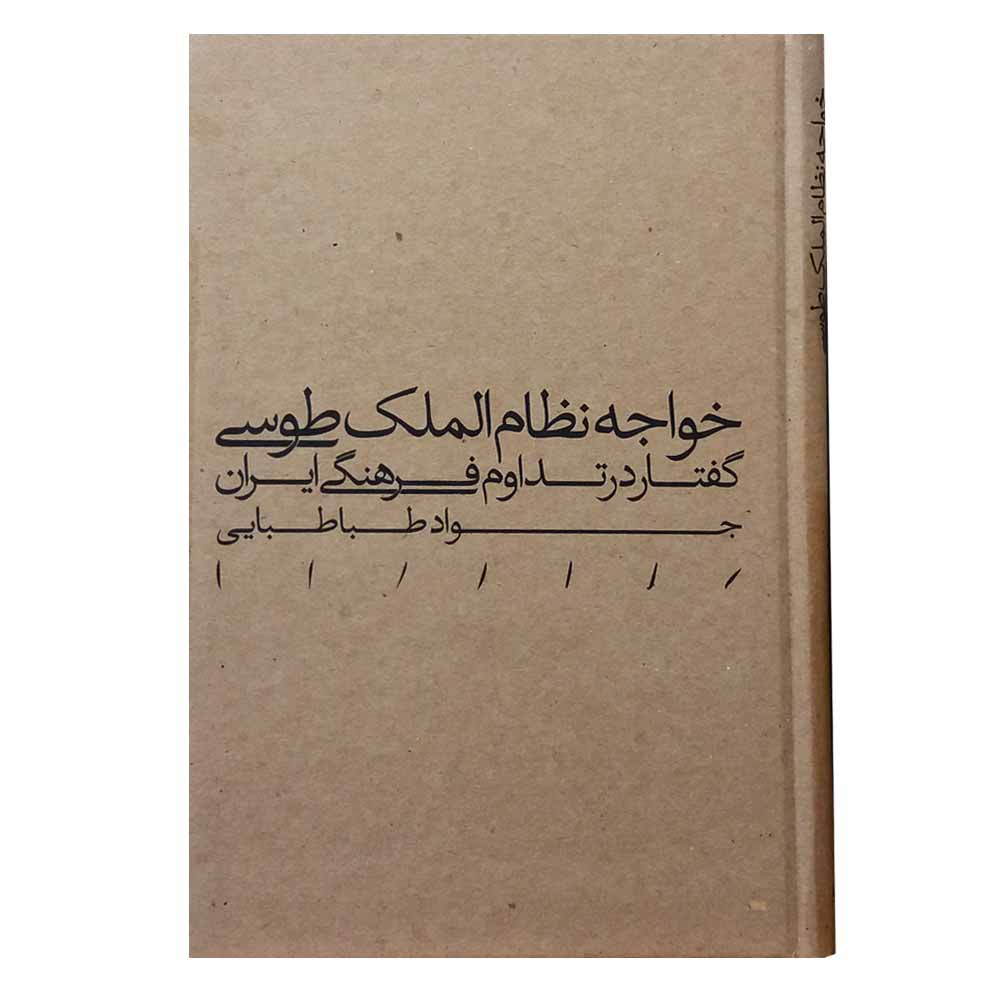 خواجه نظام الملک طوسی
گفتار در تداوم فرهنگی ایران
جواد طباطبایی
خواجه نظام الملک طوسی